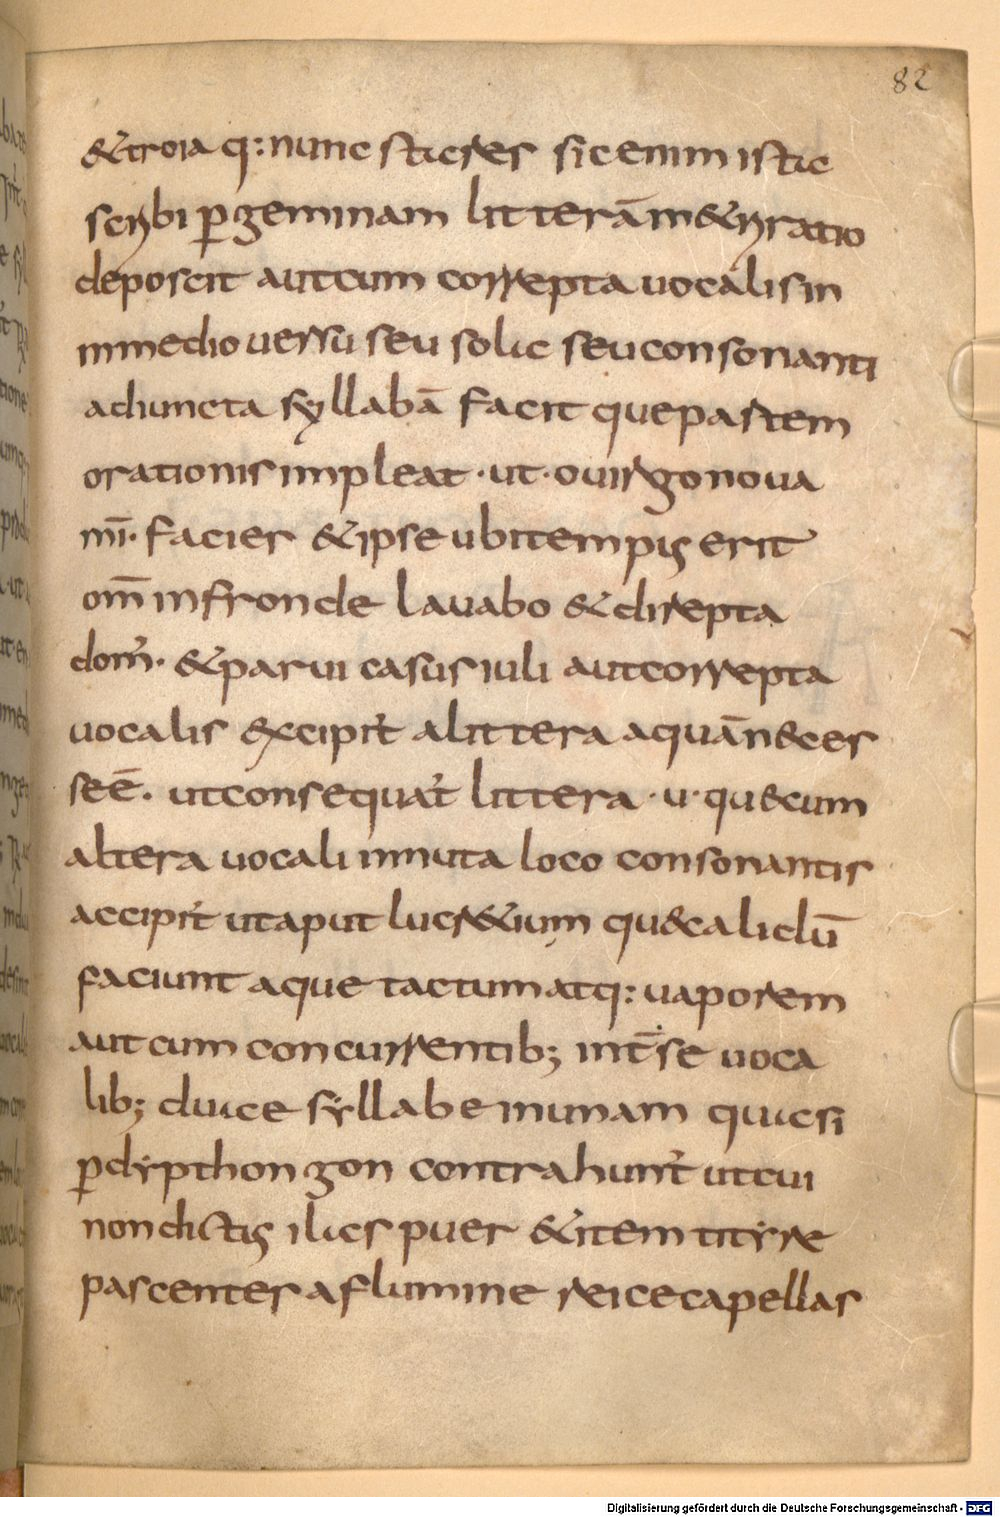 82
&troia q:nunc stares sic enim istic
scribi p̲geminam litterām&riratio
deposcit aut cum correpta uocalis in
inmedio uersu seu sola seu consonanti
adiuncta syllabā facit que partem
orationis impleat · ut · o uirgo noua
mī· facies & ipse ubi tempus erit
om̄ in fronde lauabo & direpta
dom̄· & parui casus iuli aut correpta
uocalis excipit̾ a littera a quā neces
se ē. ut consequat̾ littera · u · quae cum
altera uocali iniuta loco consonantis
accipit̾ ut aput lucr&ium quae calidū
faciunt aque tactum atq: uaporem
aut cum concurrentib; int̄ se uoca
lib; duae syllabe in unam quasi
p̲ dypthongon contrahunt̾ ut cui
non dictus ilas puer & item tityre
pascentes a flumine reice capellas
Digitalisierung gefördert durch die Deutsche Forschungsgemeinschaft - DFG